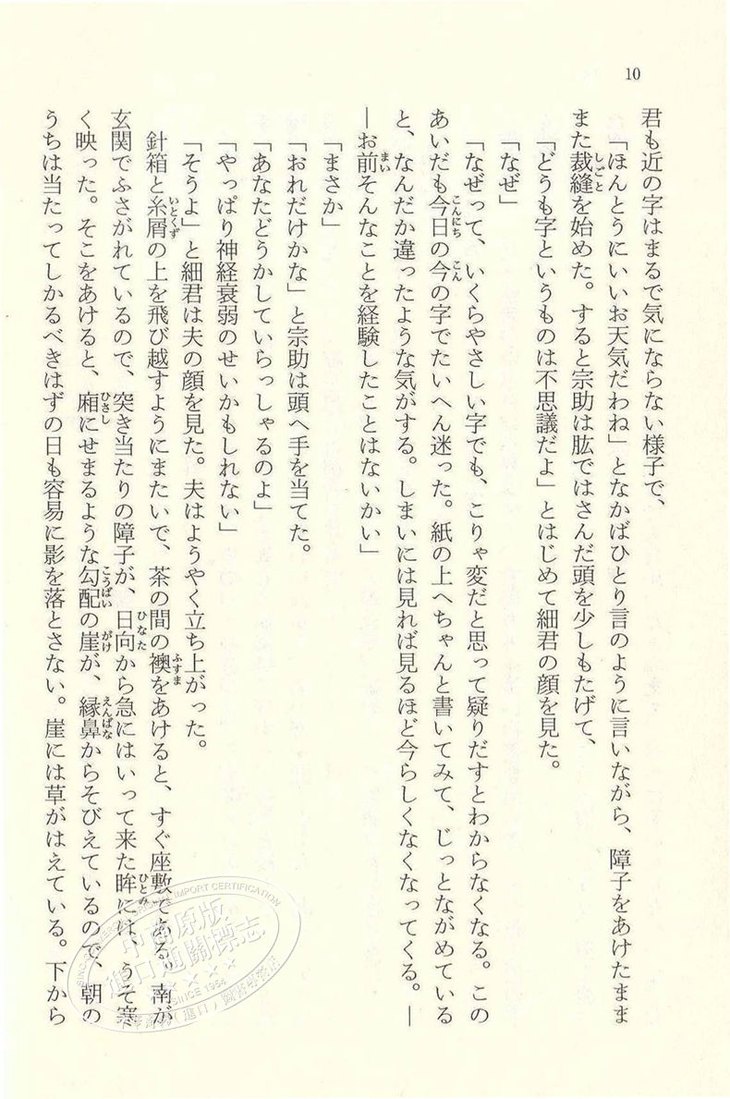 10
君も近の字はまるで気にならない様子で、
「ほんとうにいいお天気だわね」となかばひとり言のように言いながら、障子をあけたまま
また裁縫を始めた。すると宗助は肱ではさんだ頭を少しもたげて、
「どうも字というものは不思議だよ」とはじめて細君の顔を見た。
「なぜ」
「なぜって、いくらやさしい字でも、こりゃ変だと思って疑りだすとわからなくなる。この
あいだも今日の今の字でたいへん迷った。紙の上へちゃんと書いてみて、じっとながめている
と、なんだか違ったような気がする。しまいには見れば見るほど今らしくなくなってくる。―
―お前そんなことを経験したことはないかい」
「まさか」
「おれだけかな」と宗助は頭へ手を当てた。
「あなたどうかしていらっしゃるのよ」
「やっぱり神経衰弱のせいかもしれない」
「そうよ」と細君は夫の顔を見た。夫はようやく立ち上がった。
針箱と糸屑の上を飛び越すようにまたいで、茶の間の襖をあけると、すぐ座敷である。南が
玄関でふさがれているので、突き当たりの障子が、日向から急にはいって来た眸には、うそ寒
く映った。そこをあけると、廂にせまるような勾配の崖が、縁鼻からそびえているので、朝の
うちは当たってしかるべきはずの日も容易に影を落とさない。崖には草がはえている。下から
中商原版
進口通關標志
SINCE 1984